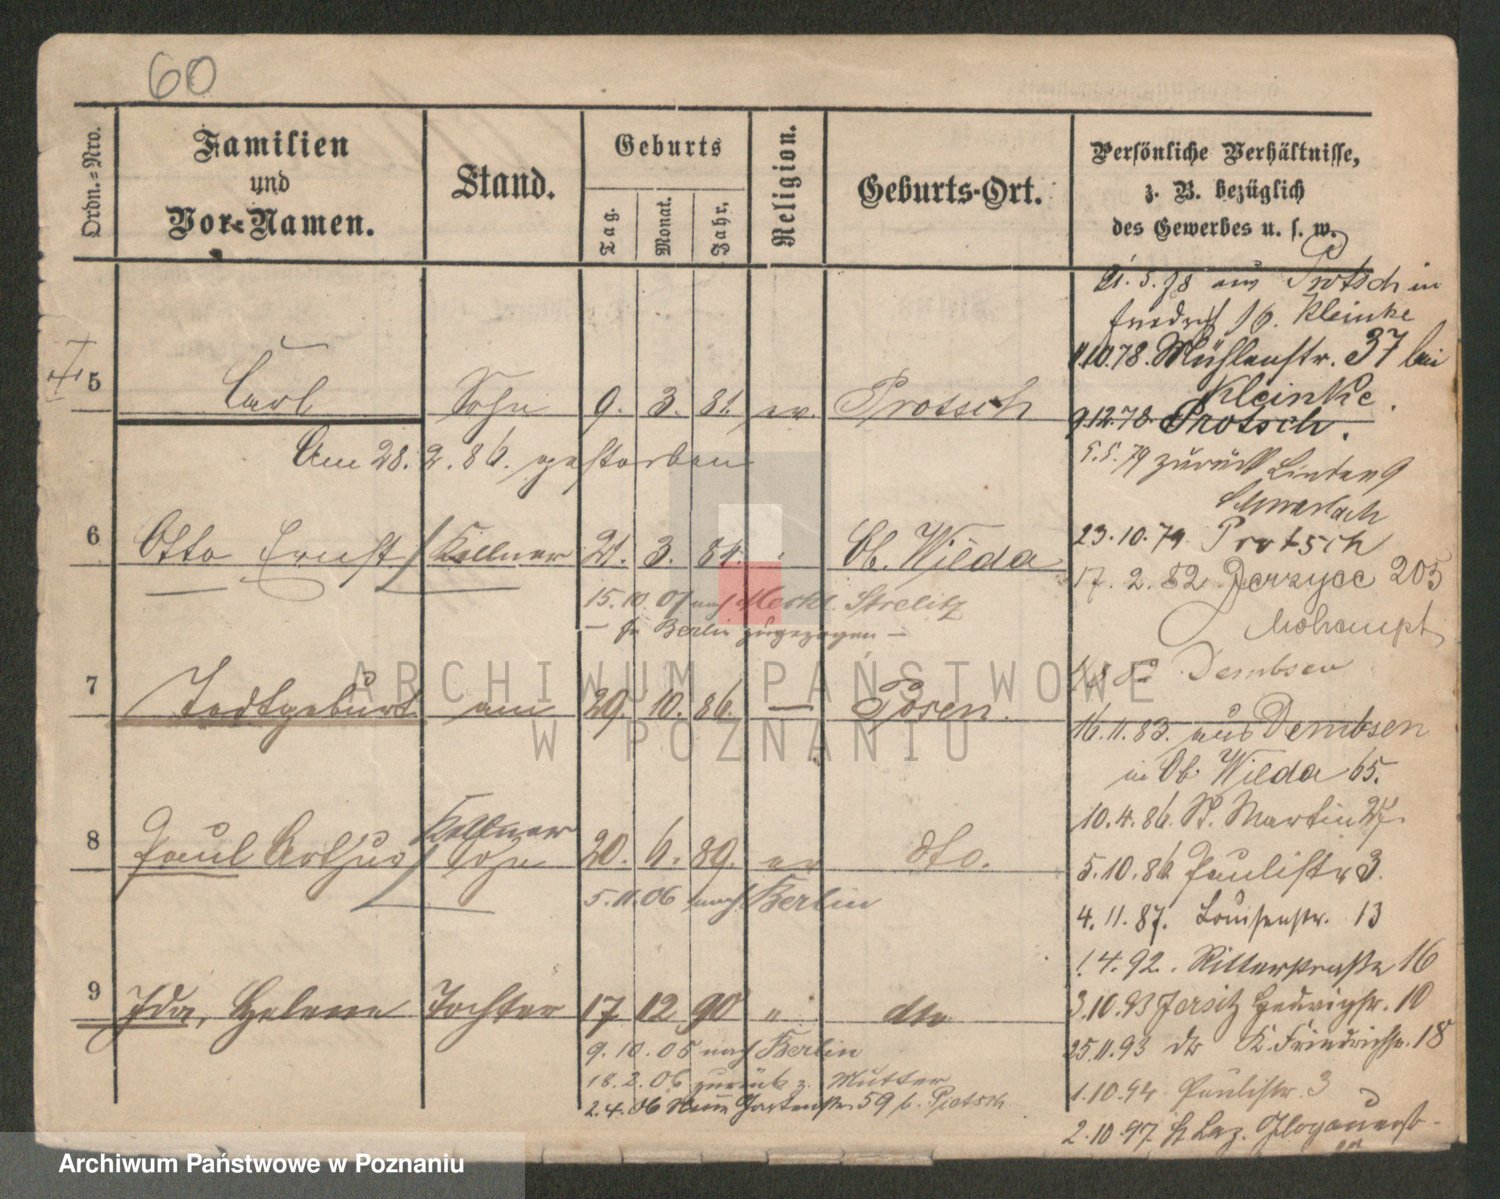 60
Ordn.=Nro.
Familien
und
Vor-Namen.
Stand.
Geburts
Tag.
Monat.
Jahr.
Religion.
Geburts-Ort.
Persönliche Verhältnisse,
z. B. bezüglich
des Gewerbes u. s. w.
5 Carl Sohn 9. 3. 81. ev. Protsch
Am 28. 2. 86. gestorben
6 Otto Ernst Kellner 21. 3. 84. Ob. Wilda
15.10.07 nach Meckl. Strelitz
Berlin zugezogen
7 Todtgeburt am 29. 10. 86. — Posen.
8 Paul Arthur Kellner Sohn 20. 6. 89. ev dto.
5.11.06 nach Berlin
9 Ida, Helene Tochter 17 12 90 " dto
9.10.05 nach Berlin
18.2.06 zurück z. Mutter
2.4.06 Neue Gartenstr 59 b. Protsch
21.5.78 aus Protsch in
Kleinke
1.10.78. Mühlenstr. 37 bei
Kleinke.
9.12.78. Protsch.
5.5.79 zurück Linden 9
23.10.79 Protsch
17.2.82. 205
Dembsen
16.11.83. aus Dembsen
in Ob. Wilda 65.
10.4.86. St. Martin
5.10.86 Paulistr 3.
4.11.87. Louisenstr. 13
1.4.92. Ritterstraße 16
3.10.93 Jersitz Hedwigstr. 10
25.11.93 do K. Friedrichstr. 18
1.10.94 Paulistr. 3
2.10.97 St Laz. Glogauerstr.
ARCHIWUM PAŃSTWOWE
W POZNANIU
Archiwum Państwowe w Poznaniu